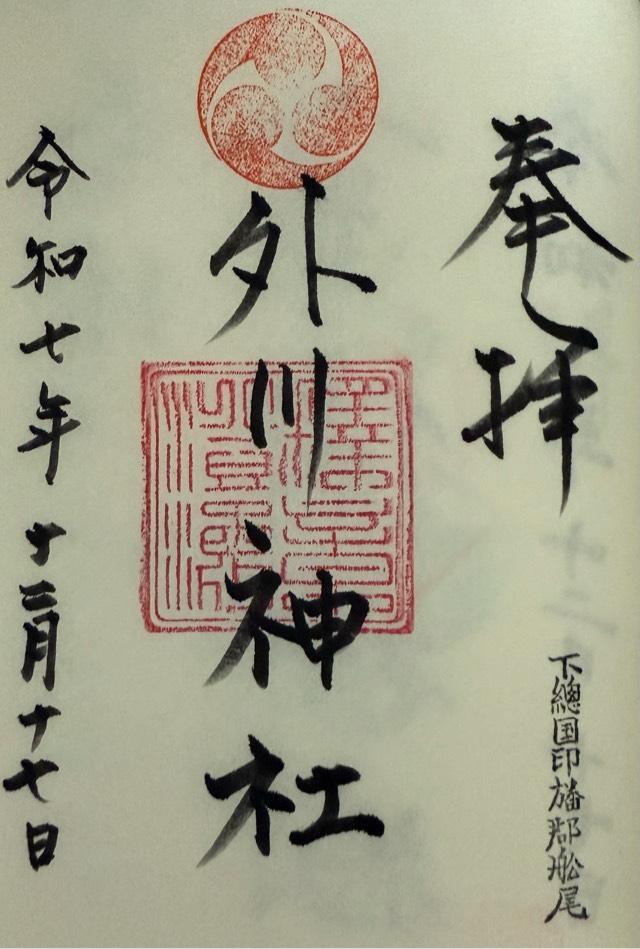 奉拝
下總国印旛郡舩尾
外川神社
令和七年十二月十七日